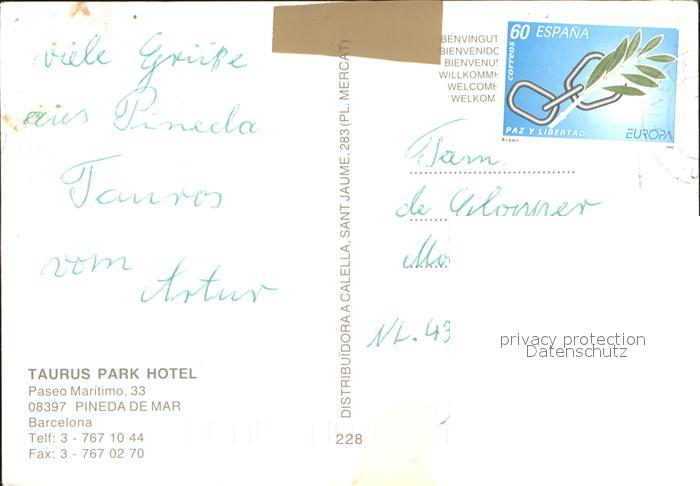 viele Grüße
aus Pineda
Tauros
vom
Artur
TAURUS PARK HOTEL
Paseo Marítimo, 33
08397 PINEDA DE MAR
Barcelona
Telf: 3 - 767 10 44
Fax: 3 - 767 02 70
DISTRIBUÏDORA A CALELLA, SANT JAUME, 283 (PL. MERCAT)
228
BENVINGUT
BIENVENIDO
BIENVENU
WILLKOMM
WELCOM
WELKOM
60 ESPAÑA
correos
PAZ Y LIBERTAD
EUROPA
Fam.
de
NL. 43
privacy protection
Datenschutz